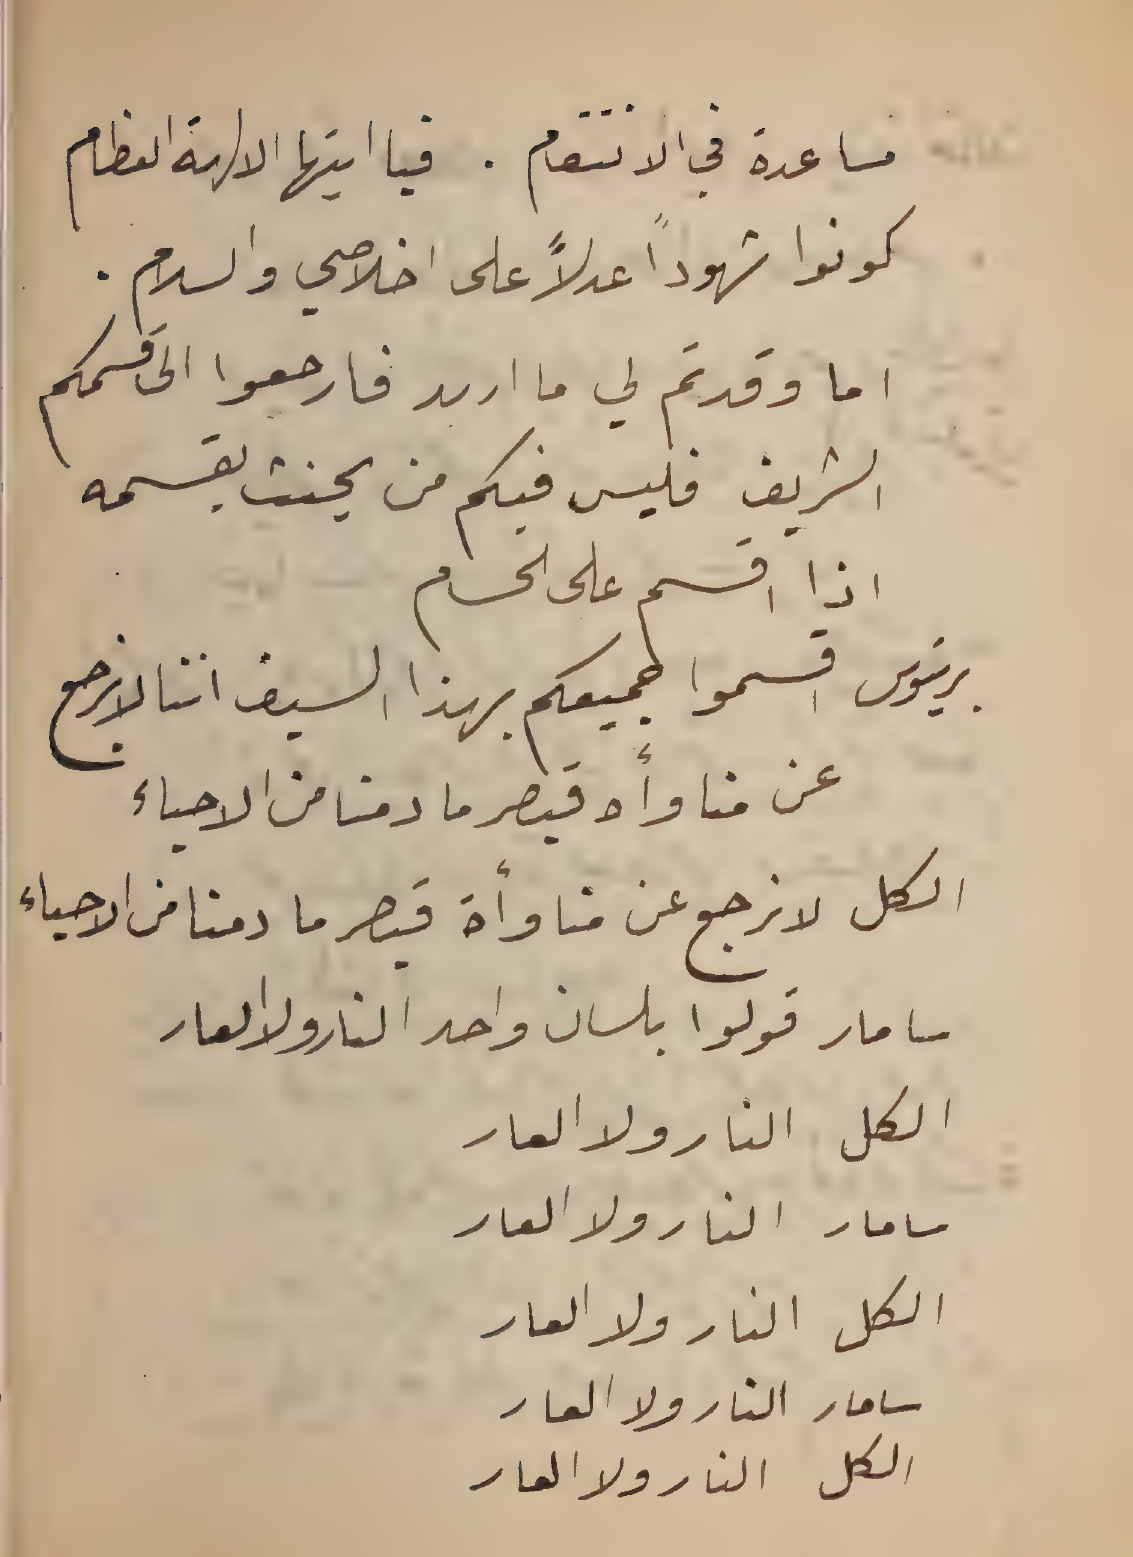 مساعدة في الانتقام . فيا ايتها الالهة العظام
كونوا شهوداً عدلاً على اخلاصي والسلام .
اما وقدتم لي ما اريد فارجعوا الى قسمكم
الشريف فليس فيكم من يحنث بقسمه
اذا اقسم على الحسام
برتوس اقسموا جميعكم بهذا السيف اننا لا نرجع
عن مناوأة قيصر ما دمنا من الاحياء
الكل لا نرجع عن مناوأة قيصر ما دمنا من الاحياء
سامار قولوا بلسان واحد النار ولا العار
الكل النار ولا العار
سامار النار ولا العار
الكل النار ولا العار
سامار النار ولا العار
الكل النار ولا العار